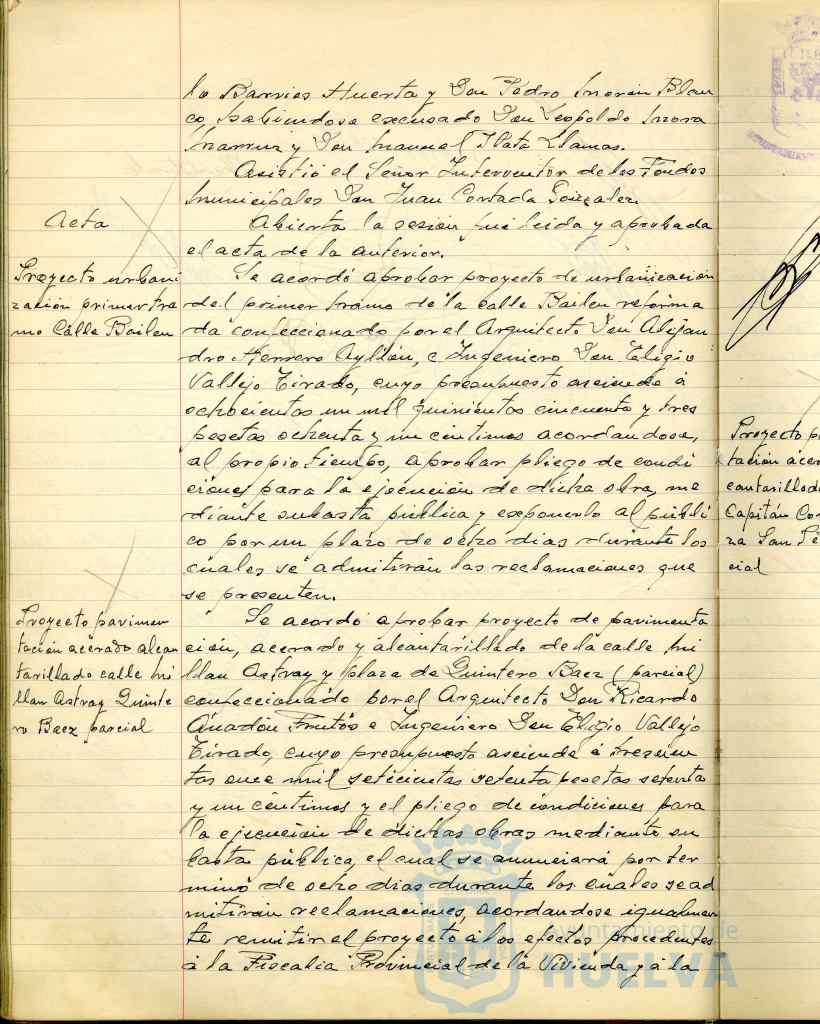 lo Barrios Huerta y Don Pedro Morón Blan
co, habiendose excusado Don Leopoldo Mora
Marruz y Don Manuel Plata Llamas.
Asistió el Señor Interventor de los Fondos
Municipales Don Juan Cortada Gonzalez.
Acta
Abierta la sesion fue leida y aprobada
el acta de la anterior.
Proyecto urbani
zación primer tra
mo Calle Bailen
Se acordó aprobar proyecto de urbanizacion
del primer tramo de la calle Bailen reforma
da confeccionado por el Arquitecto Don Alejan
dro Herrero Ayllón, e Ingeniero Don Eligio
Vallejo Tirado, cuyo presupuesto asciende á
ochocientas un mil quinientas cincuenta y tres
pesetas ochenta y un centimos acordandose,
al propio tiempo, aprobar pliego de condi
ciones para la ejecución de dicha obra, me
diante subasta pública y exponerlo al públi
co por un plazo de ocho dias durante los
cuales se admitirán las reclamaciones que
se presenten.
Proyecto pavimen
tación acerado alcan
tarillado calle Mi
llan Astray Quinte
ro Baez parcial
Se acordó aprobar proyecto de pavimenta
ción, acerado y alcantarillado de la calle Mi
llan Astray y plaza de Quintero Baez (parcial)
confeccionado por el Arquitecto Don Ricardo
Anadón Frutos e Ingeniero Don Eligio Vallejo
Tirado, cuyo presupuesto asciende á trescien
tas once mil setecientas setenta pesetas setenta
y un céntimos y el pliego de condiciones para
la ejecución de dichas obras mediante su
basta pública, el cual se anunciará por ter
mino de ocho dias durante los cuales se ad
mitirán reclamaciones, acordandose igualmen
te remitir el proyecto á los efectos procedentes
á la Fiscalia Provincial de la Vivienda y á la
Proyecto
tación
Capitán
cial
Ayuntamiento de
HUELVA